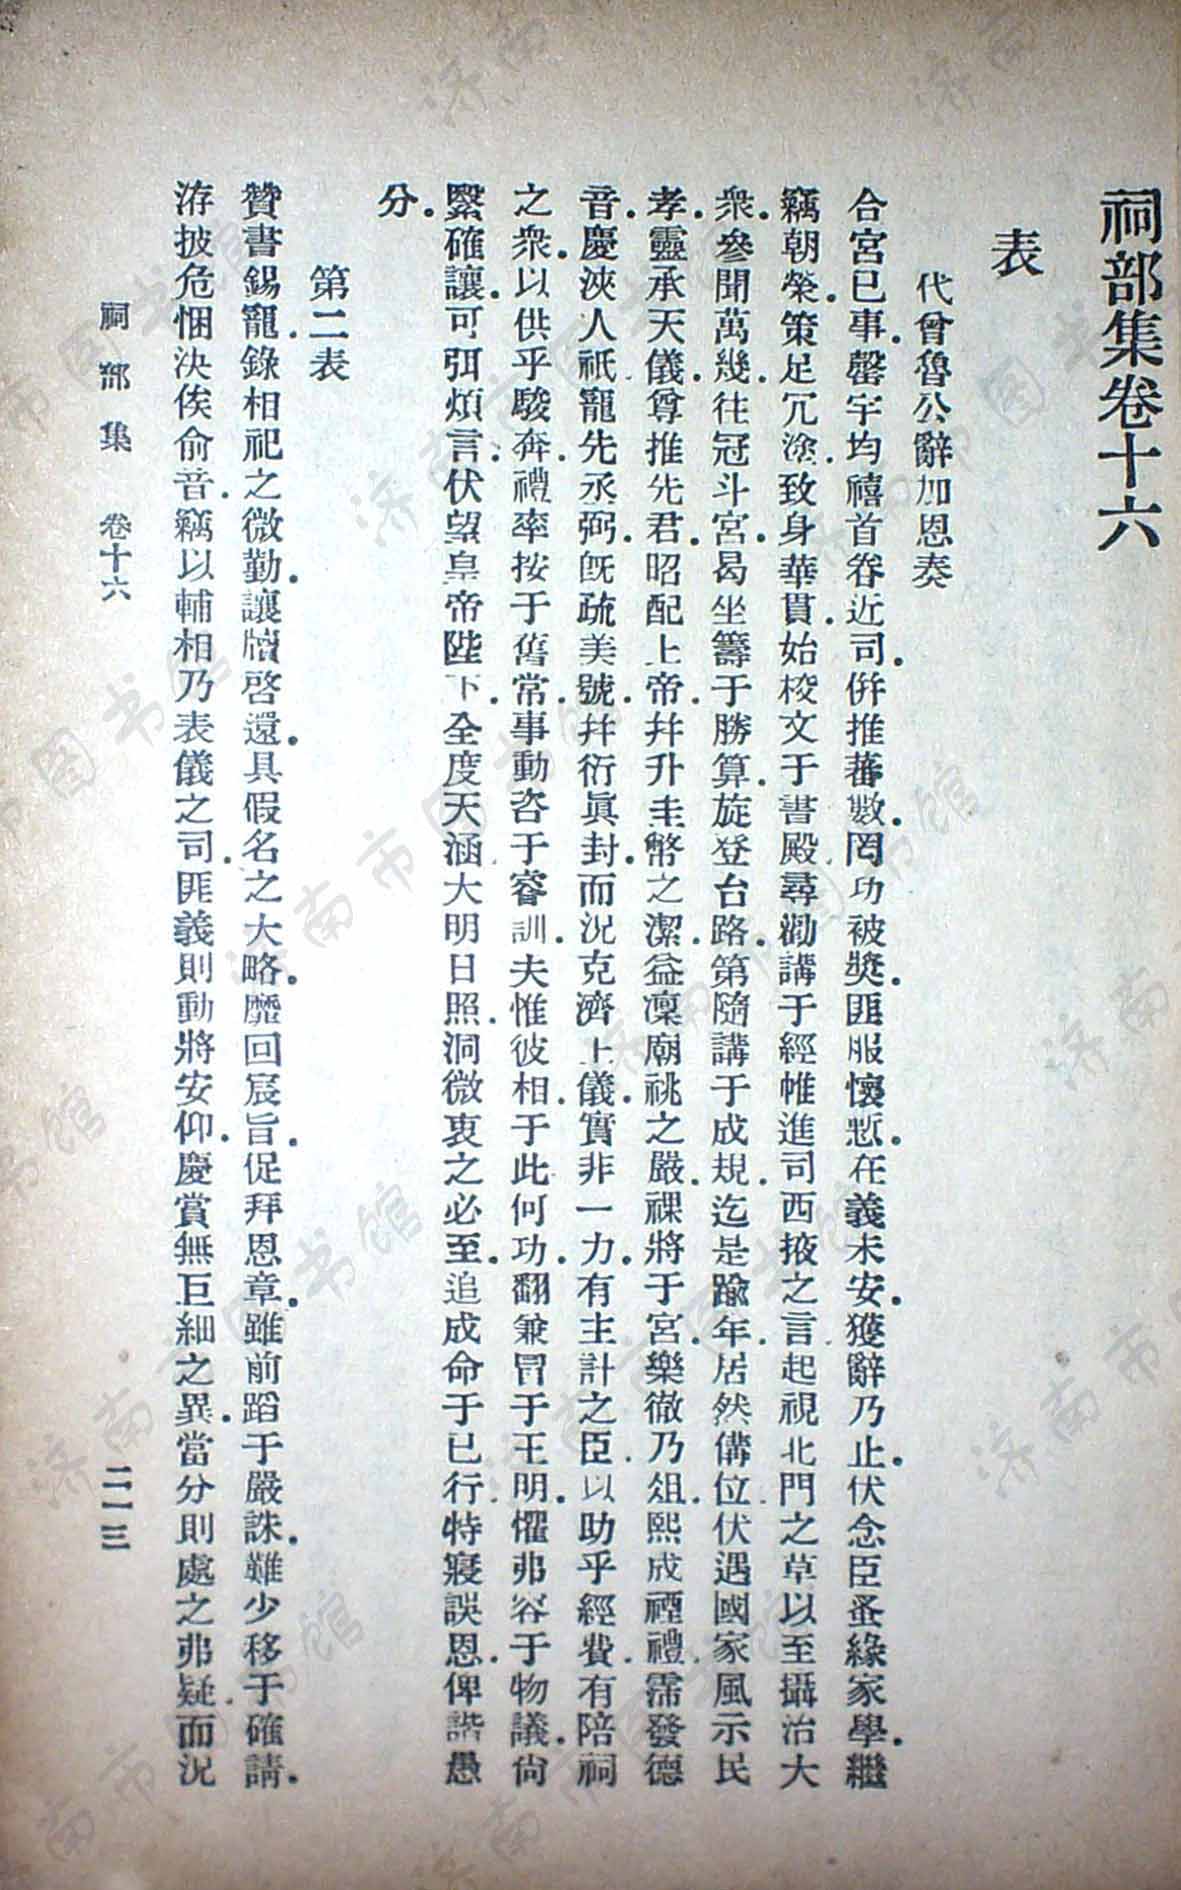 祠部集卷十六
表
代曾魯公辭加恩奏
合宮已事罄宇均禧首眷近司。併推蕃數。罔功被奬。匪服懷慙。在義未安。獲辭乃止。伏念臣蚤緣家學。繼
竊朝榮。策足冗塗。致身華貫。始校文于書殿。尋勸講于經帷進司西掖之言起視北門之草以至攝治大
衆。參聞萬幾。往冠斗宮。曷坐籌于勝算。旋登台路。第隨講于成規。迄是踰年。居然備位。伏遇國家風示民
孝。靈承天儀。尊推先君。昭配上帝。幷升圭幣之潔。益凜廟祧之嚴。祼將于宮。樂徹乃俎。熙成禋禮。霈發德
音。慶浹人祇。寵先丞弼。旣疏美號。幷衍眞封。而況克濟上儀。實非一力。有主計之臣。以助乎經費。有陪祠
之衆。以供乎駿奔。禮率按于舊常。事動咨于睿訓。夫惟彼相。于此何功。翻兼冒于王明。懼弗容于物議。尙
繄確讓。可弭煩言。伏望皇帝陛下。全度天涵。大明日照。洞微衷之必至。追成命于已行。特寢誤恩。俾諧愚
分。
第二表
贊書錫寵。錄相祀之微勤。讓牘啓還。具假名之大略。靡回宸旨。促拜恩章。雖前蹈于嚴誅。難少移于確請。
洊披危悃。決俟俞音。竊以輔相乃表儀之司。匪義則動將安仰。慶賞無巨細之異。當分則處之弗疑。而況
祠部集 卷十六 二一三